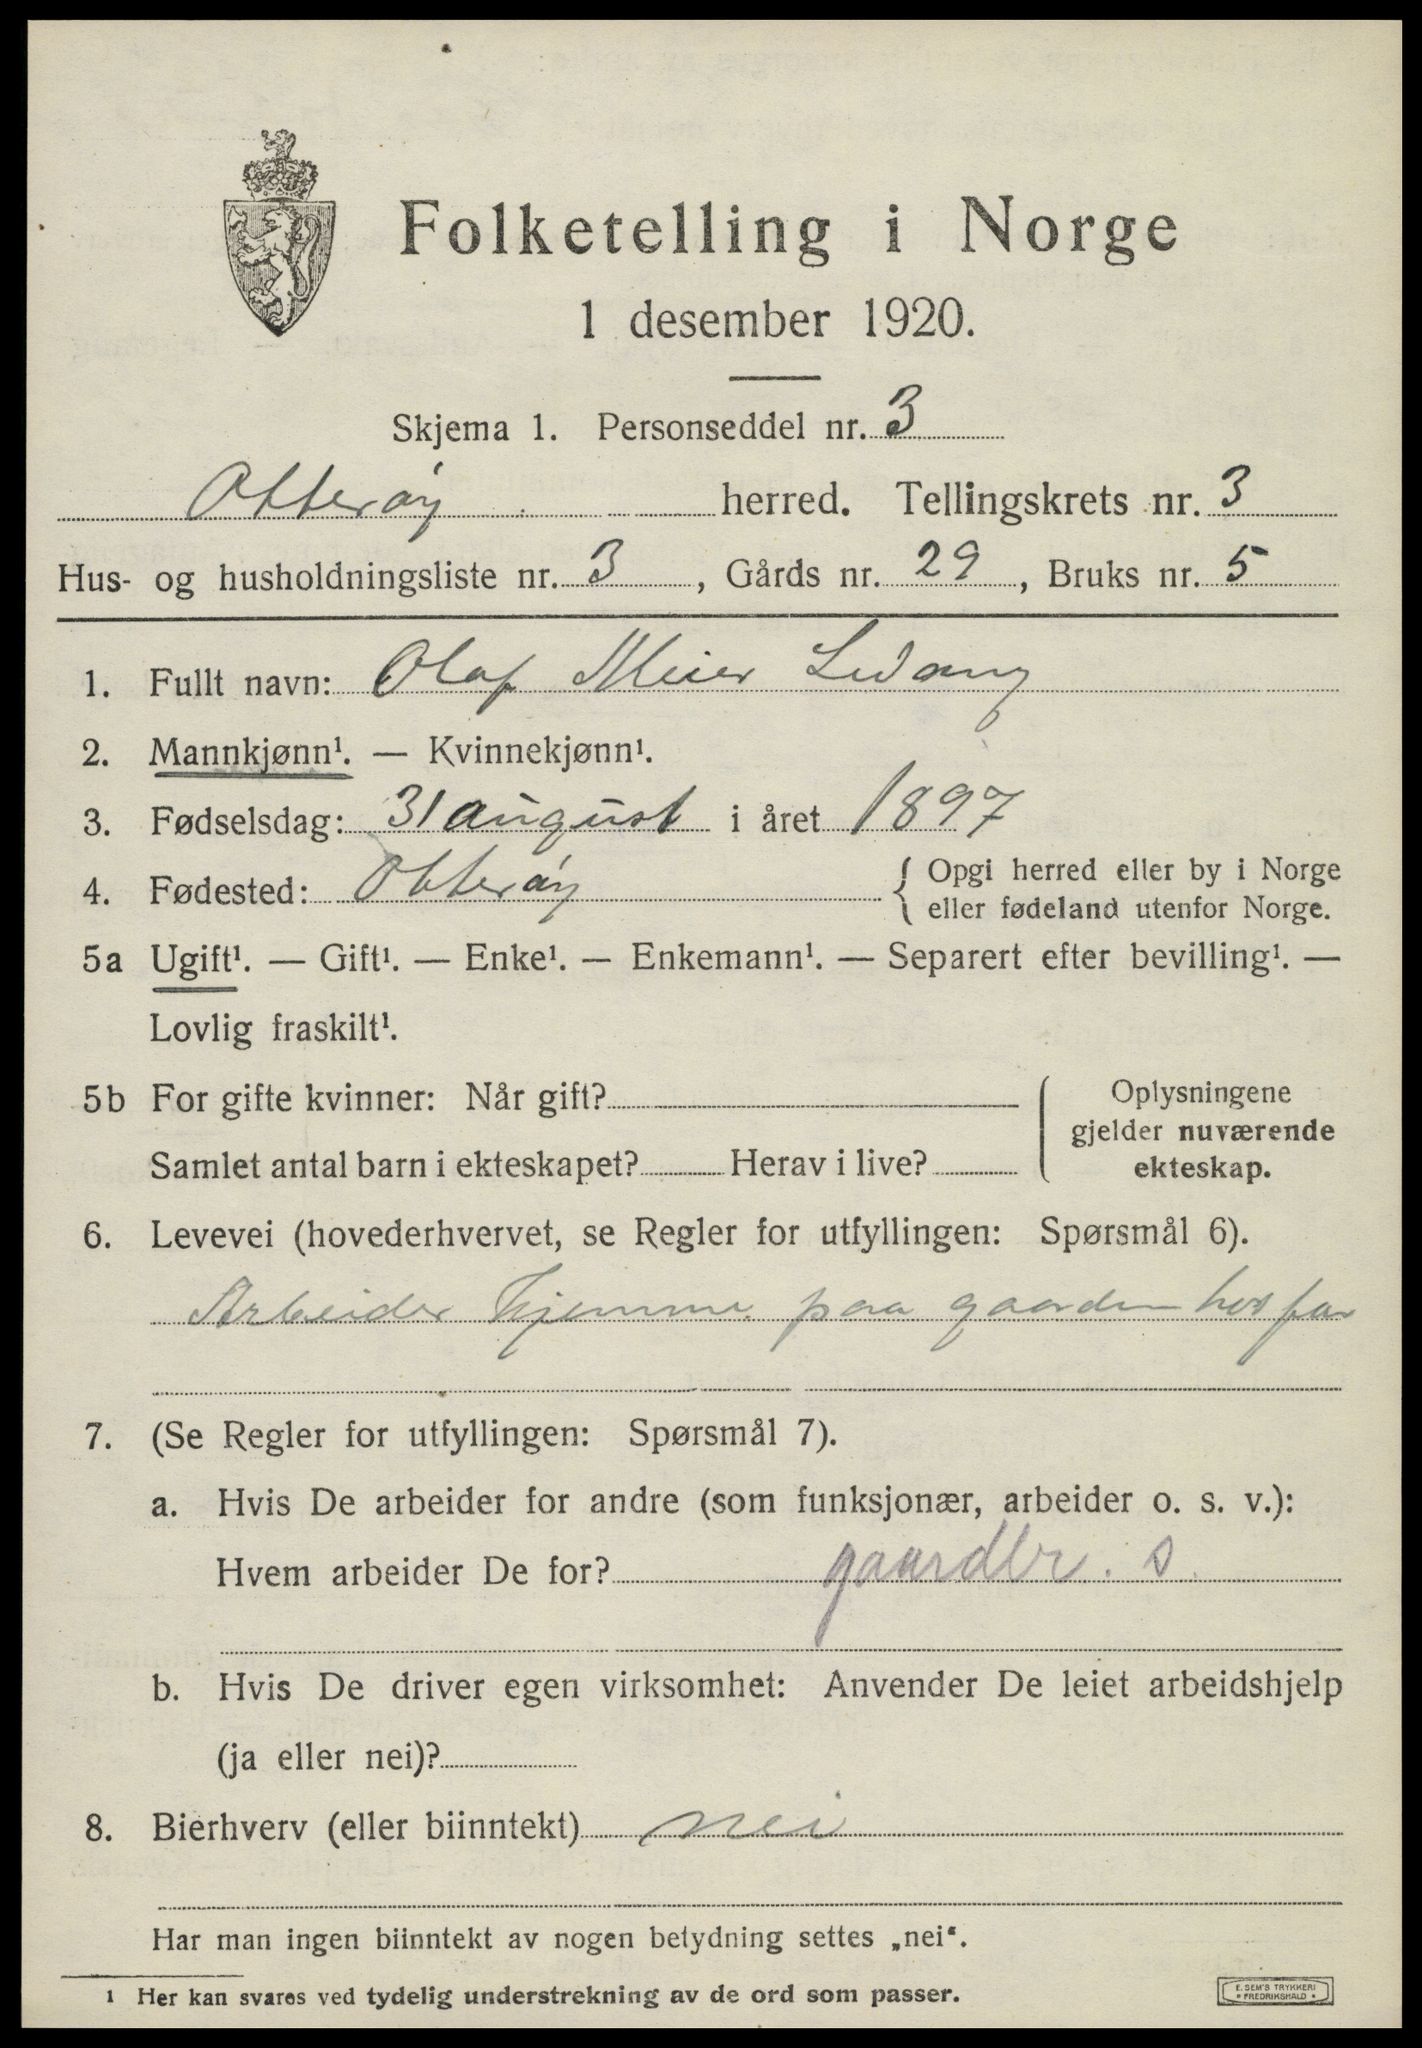 Folketelling i Norge
1 desember 1920.
Skjema 1. Personseddel nr. 3
Otterøy herred. Tellingskrets nr. 3
Hus- og husholdningsliste nr. 3, Gårds nr. 29, Bruks nr. 5
1. Fullt navn: Olaf Meier Ledang
2. Mannkjønn¹. — Kvinnekjønn¹.
3. Fødselsdag: 31 august i året 1897
4. Fødested: Otterøy { Opgi herred eller by i Norge
eller fødeland utenfor Norge.
5a Ugift¹. — Gift¹. — Enke¹. — Enkemann¹. — Separert efter bevilling¹. —
Lovlig fraskilt¹.
5b For gifte kvinner: Når gift?
Samlet antal barn i ekteskapet? Herav i live?
Oplysningene
gjelder nuværende
ekteskap.
6. Levevei (hovederhvervet, se Regler for utfyllingen: Spørsmål 6).
Arbeider hjemme paa gaarden hos far
7. (Se Regler for utfyllingen: Spørsmål 7).
a. Hvis De arbeider for andre (som funksjonær, arbeider o. s. v.):
Hvem arbeider De for? gaardbr. s
b. Hvis De driver egen virksomhet: Anvender De leiet arbeidshjelp
(ja eller nei)?
8. Bierhverv (eller biinntekt) nei
Har man ingen biinntekt av nogen betydning settes „nei“.
1 Her kan svares ved tydelig understrekning av de ord som passer.
E. SEM'S TRYKKERI
• FREDRIKSHALD •